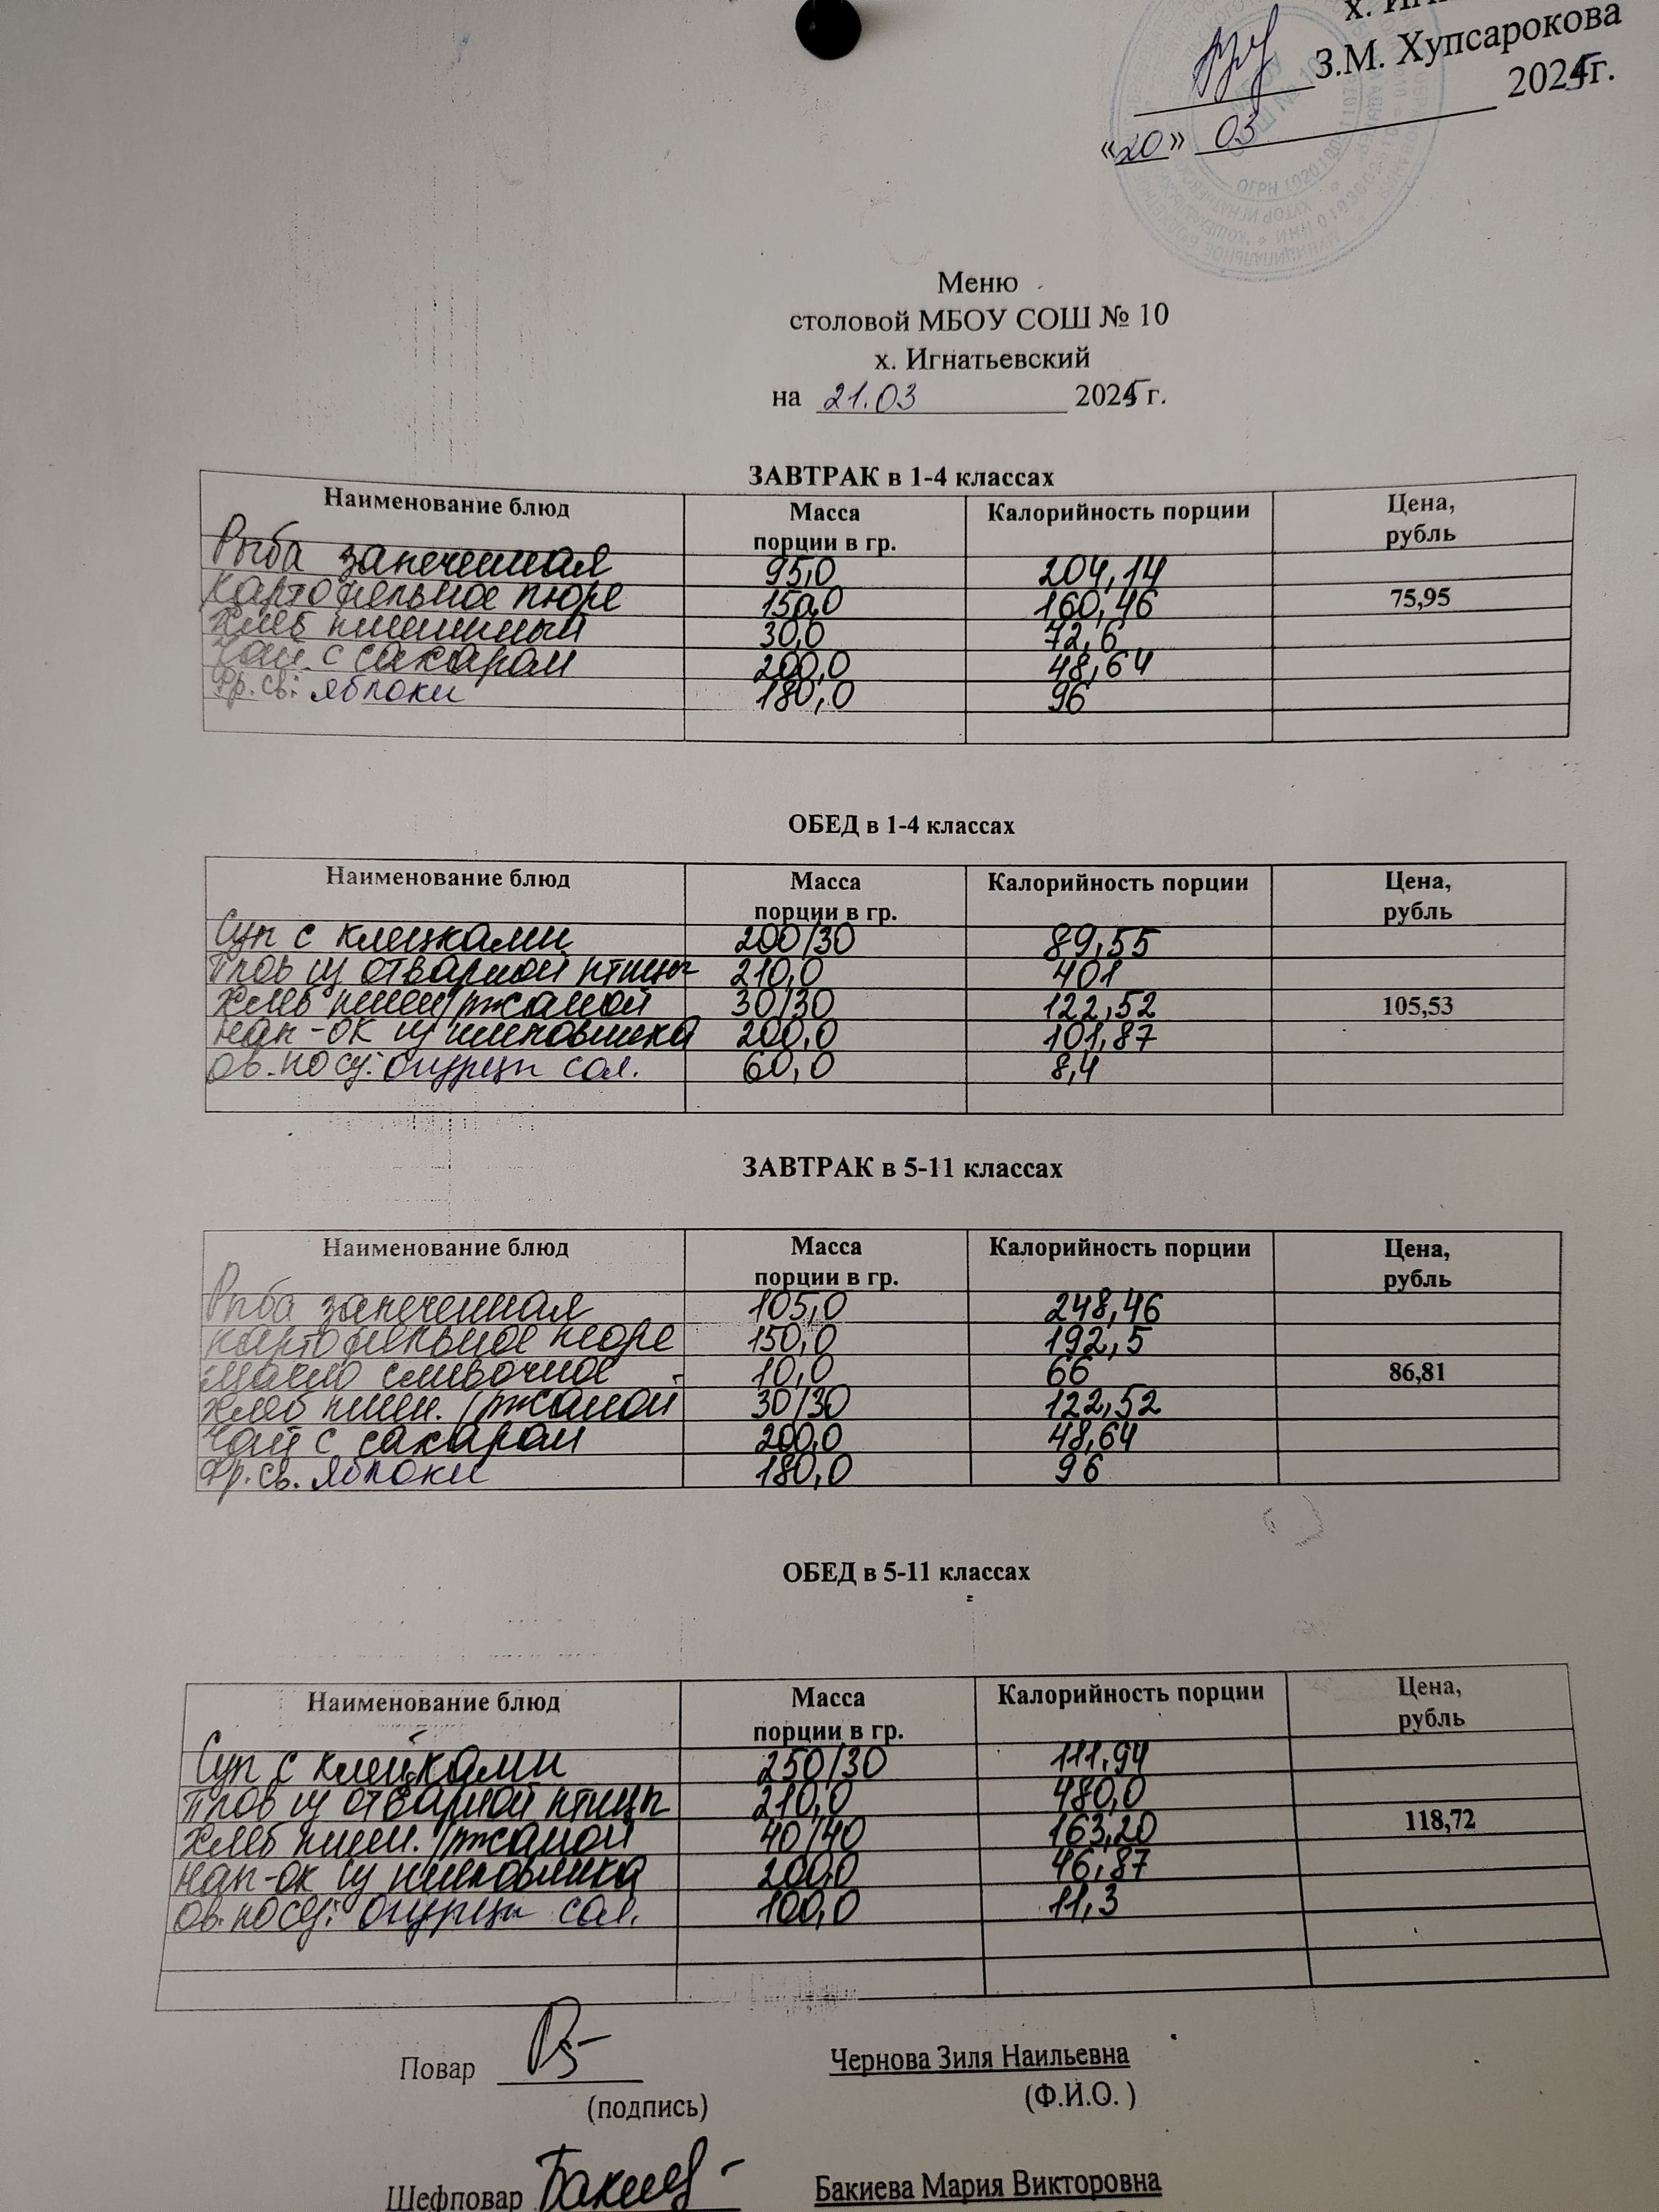 З.М. Хупсарокова
«20» 03 2025г.
Меню
столовой МБОУ СОШ № 10
х. Игнатьевский
на 21.03 2025 г.
ЗАВТРАК в 1-4 классах
Наименование блюд Масса порции в гр. Калорийность порции Цена, рубль
Рыба запеченная 95,0 204,14
Картофельное пюре 150,0 160,46 75,95
Хлеб пшеничный 30,0 72,6
Чай с сахаром 200,0 48,64
Фр. св: яблоки 180,0 96
ОБЕД в 1-4 классах
Наименование блюд Масса порции в гр. Калорийность порции Цена, рубль
Суп с клецками 200/30 89,55
Плов из отварной птицы 210,0 401
Хлеб пшен/ржаной 30/30 122,52 105,53
Нап-ок из шиповника 200,0 101,87
Ов. по сез: огурцы сол. 60,0 8,4
ЗАВТРАК в 5-11 классах
Наименование блюд Масса порции в гр. Калорийность порции Цена, рубль
Рыба запеченная 105,0 248,46
Картофельное пюре 150,0 192,5
Масло сливочное 10,0 66 86,81
Хлеб пшен. /ржаной 30/30 122,52
Чай с сахаром 200,0 48,64
Фр. св. яблоки 180,0 96
ОБЕД в 5-11 классах
Наименование блюд Масса порции в гр. Калорийность порции Цена, рубль
Суп с клецками 250/30 111,94
Плов из отварной птицы 210,0 480,0
Хлеб пшен. /ржаной 40/40 163,20 118,72
Нап-ок из шиповника 200,0 46,87
Ов. по сез: огурцы сол. 100,0 11,3
Повар Чернова Зиля Наильевна
(подпись) (Ф.И.О. )
Шефповар Бакиева Мария Викторовна